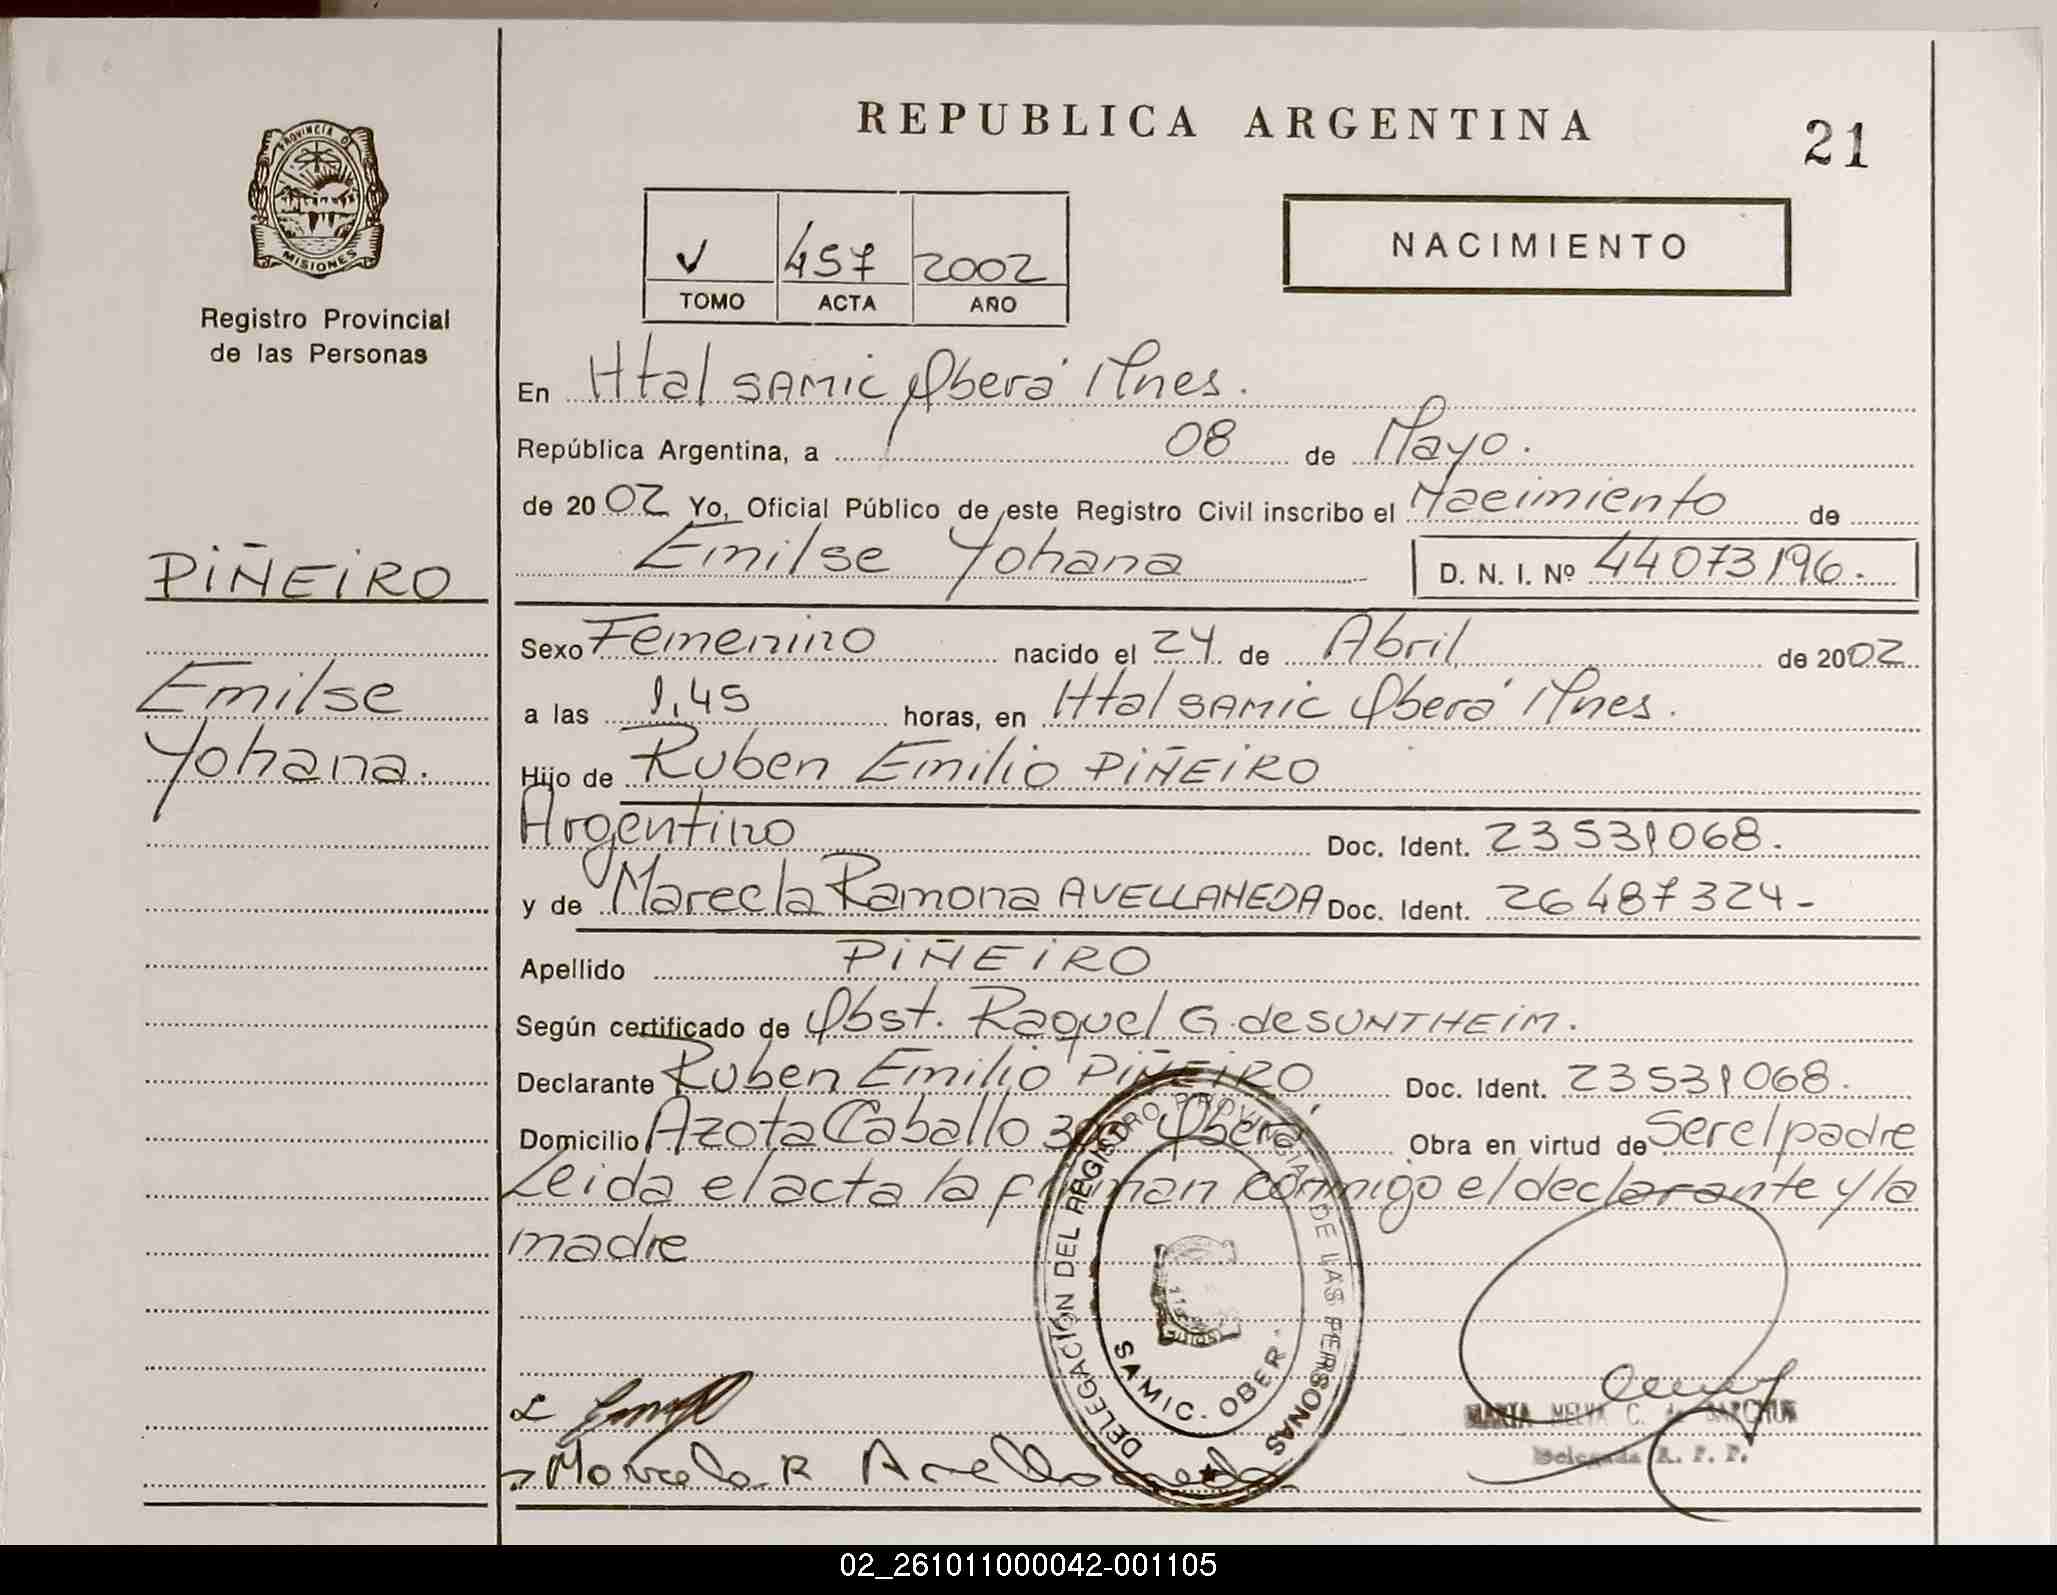 REPUBLICA ARGENTINA
21
PROVINCIA D
MISIONES
Registro Provincial
de las Personas
V 457 2002
TOMO ACTA AÑO
NACIMIENTO
En Htal SAMIC Oberá Mnes.
República Argentina, a 08 de Mayo.
de 2002 Yo, Oficial Público de este Registro Civil inscribo el Nacimiento de
Emilse Yohana D. N. I. Nº 44073196.
PIÑEIRO
Emilse
Yohana.
Sexo Femenino nacido el 24 de Abril de 2002
a las 1,45 horas, en Htal SAMIC Oberá Mnes.
Hijo de Ruben Emilio PIÑEIRO
Argentino Doc. Ident. 23531068.
y de Marcela Ramona AVELLANEDA Doc. Ident. 26487324-
Apellido PIÑEIRO
Según certificado de Obst. Raquel G. de SUNTHEIM.
Declarante Ruben Emilio PIÑEIRO Doc. Ident. 23531068.
Domicilio Azota Caballo Oberá Obra en virtud de Ser el padre
Leida el acta la firman conmigo el declarante y la
madre
DELEGACIÓN DEL REGISTRO PROVINCIAL DE LAS PERSONAS
SAMIC. OBER
Marcela R Avellaneda
MARIA MELVA C. de
Delegada R. P. P.
02_261011000042-001105